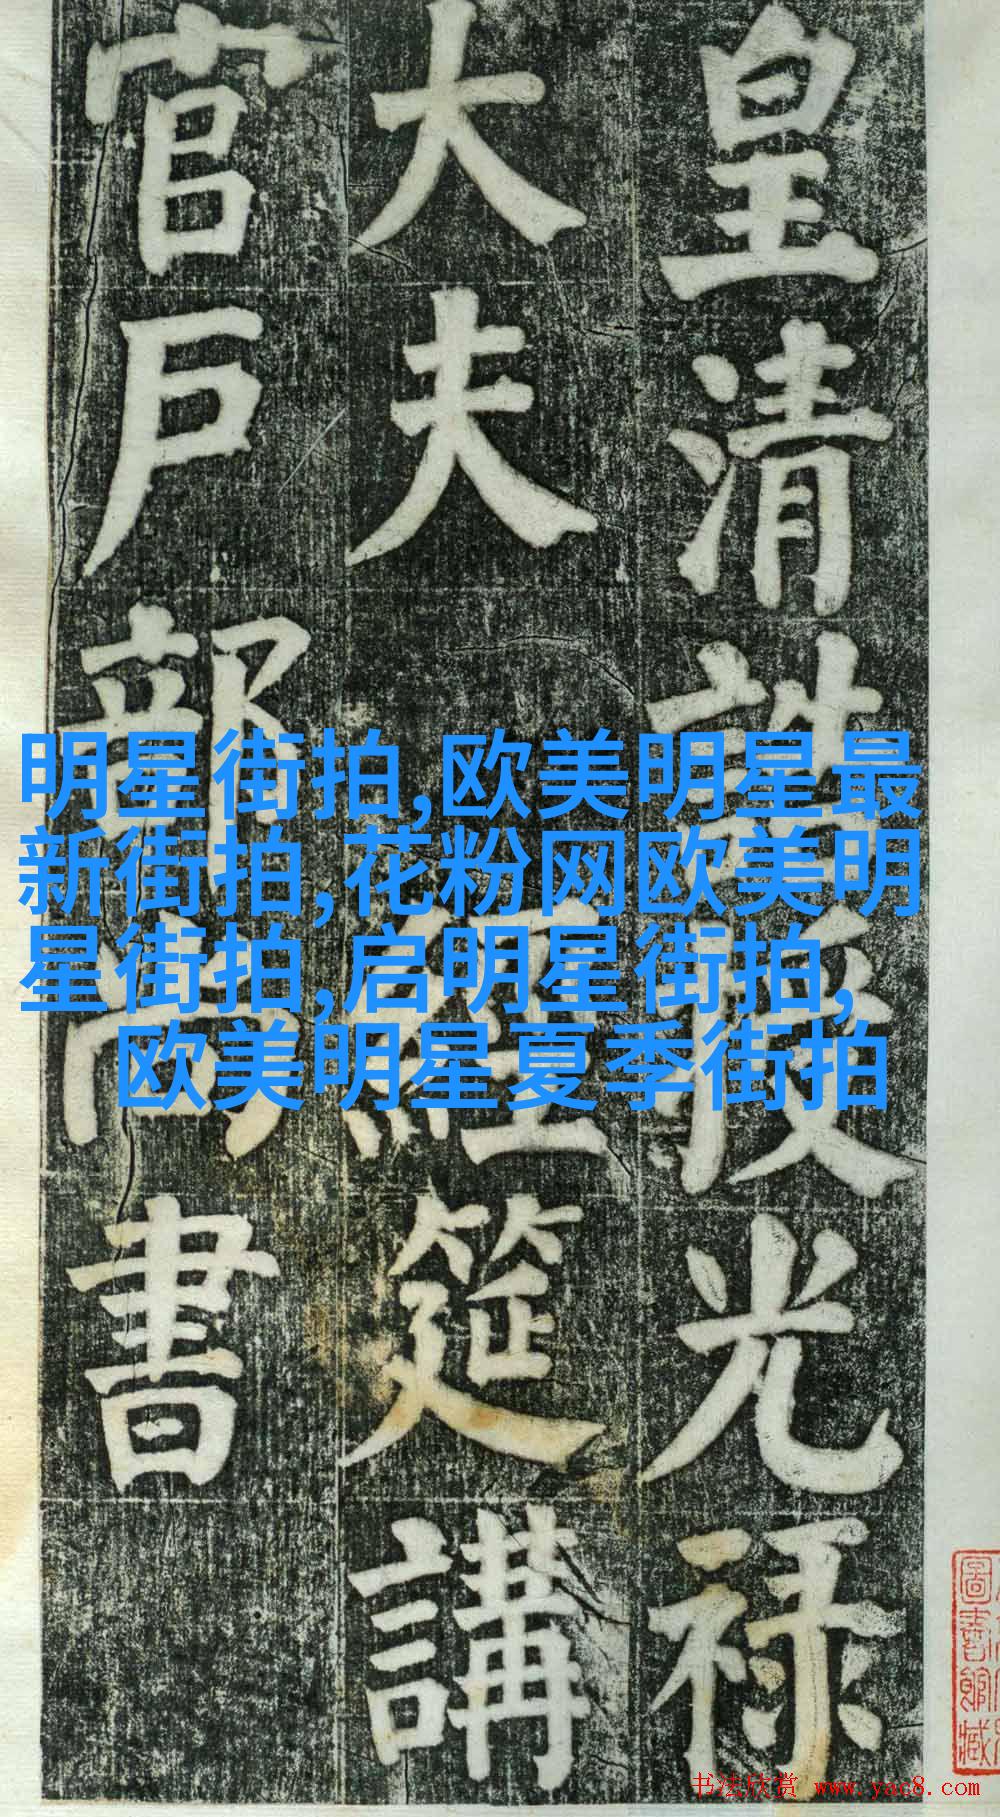 皇清誥授光禄
大夫經筵講
官戶部尚書
明星街拍,欧美明星最
新街拍,花粉网欧美明
星街拍,启明星街拍,
欧美明星夏季街拍
圖書館藏
书法欣赏 www.yac8.com